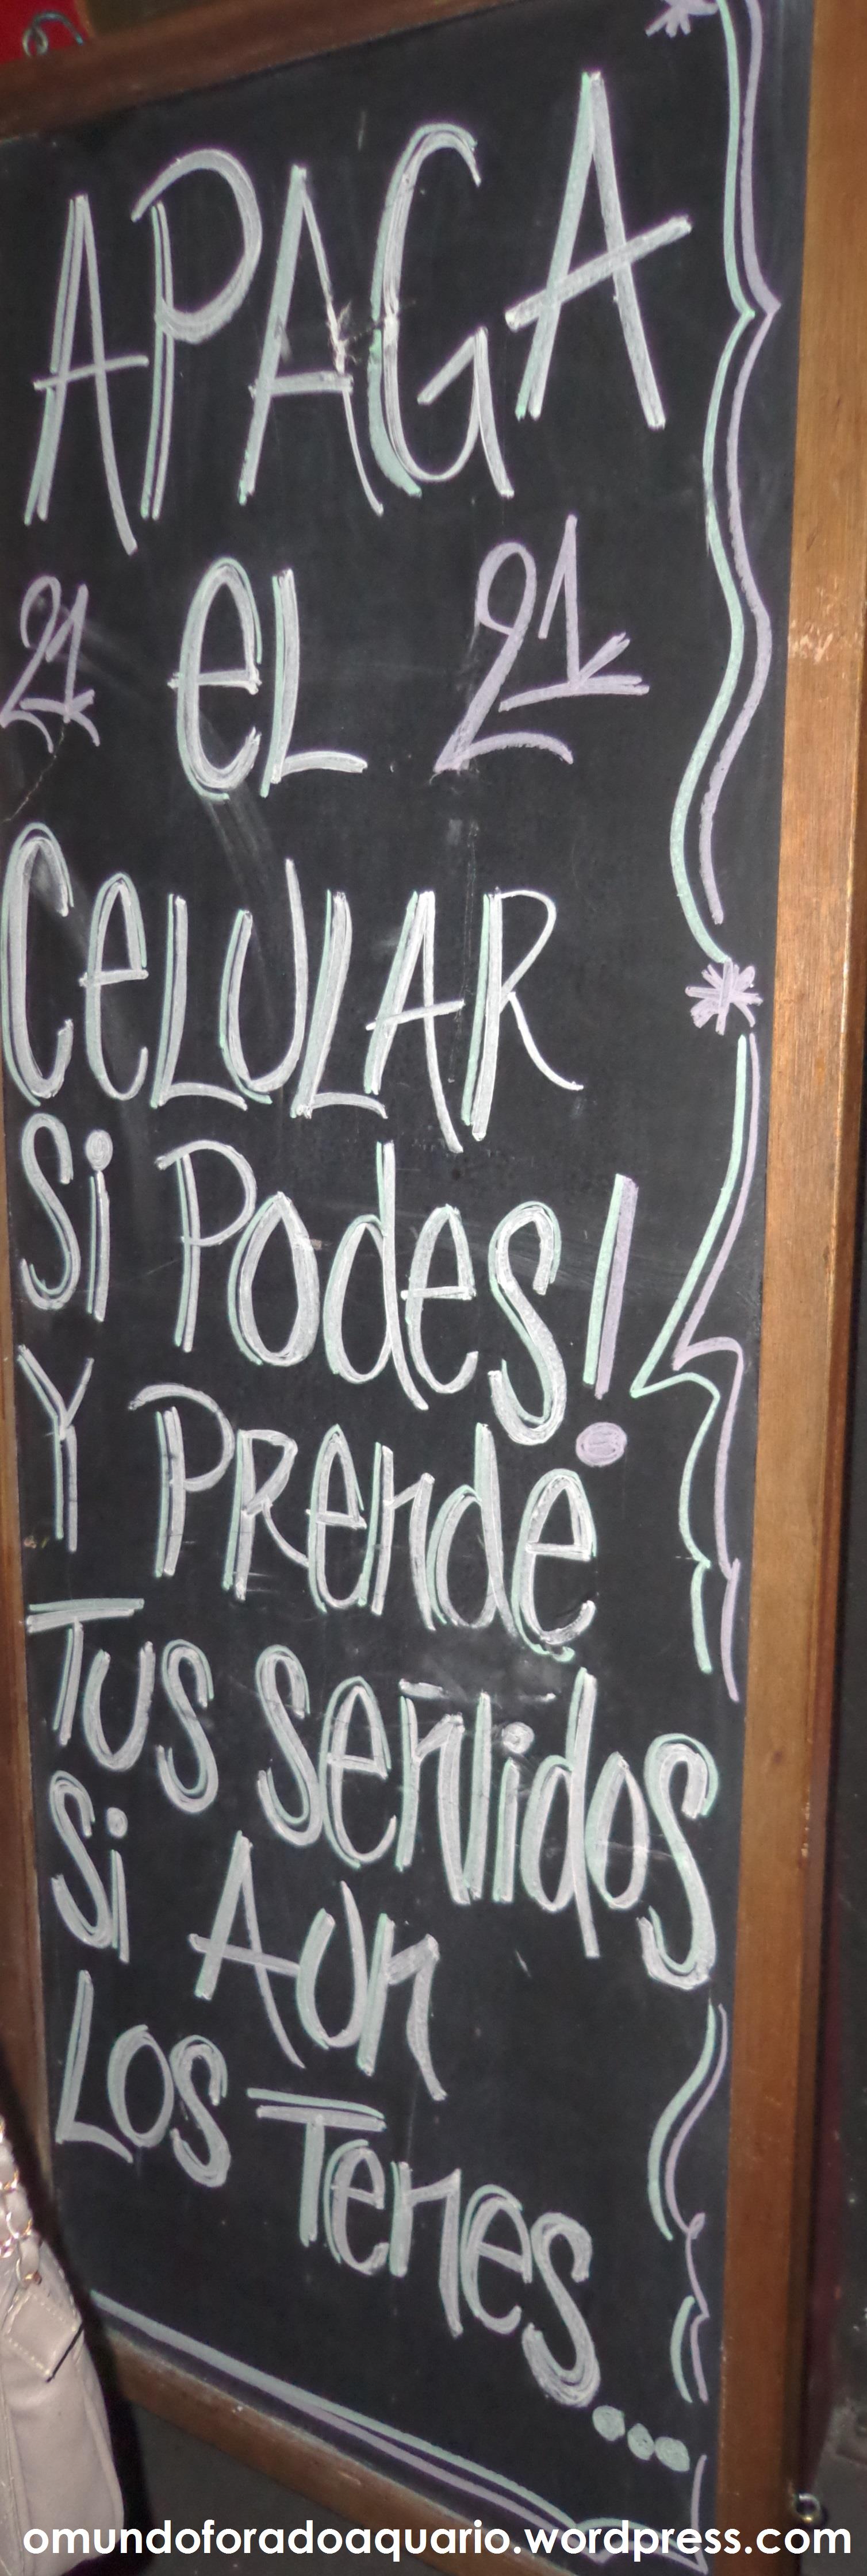 APAGA
21 eL 21
CeLULAR
Si Podes!
Y PRende
Tus Sentidos
Si Aun
Los Tenes...
omundoforadoaquario.wordpress.com